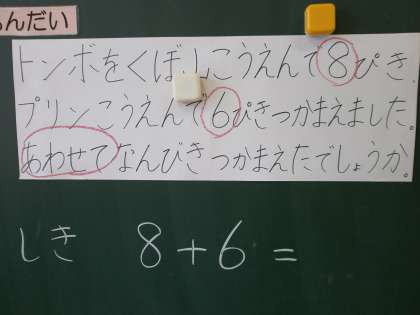 んだい
トンボをくぼしこうえんで8ぴき、
プリンこうえんで6ぴきつかまえました。
あわせてなんびきつかまえたでしょうか。
しき 8+6=